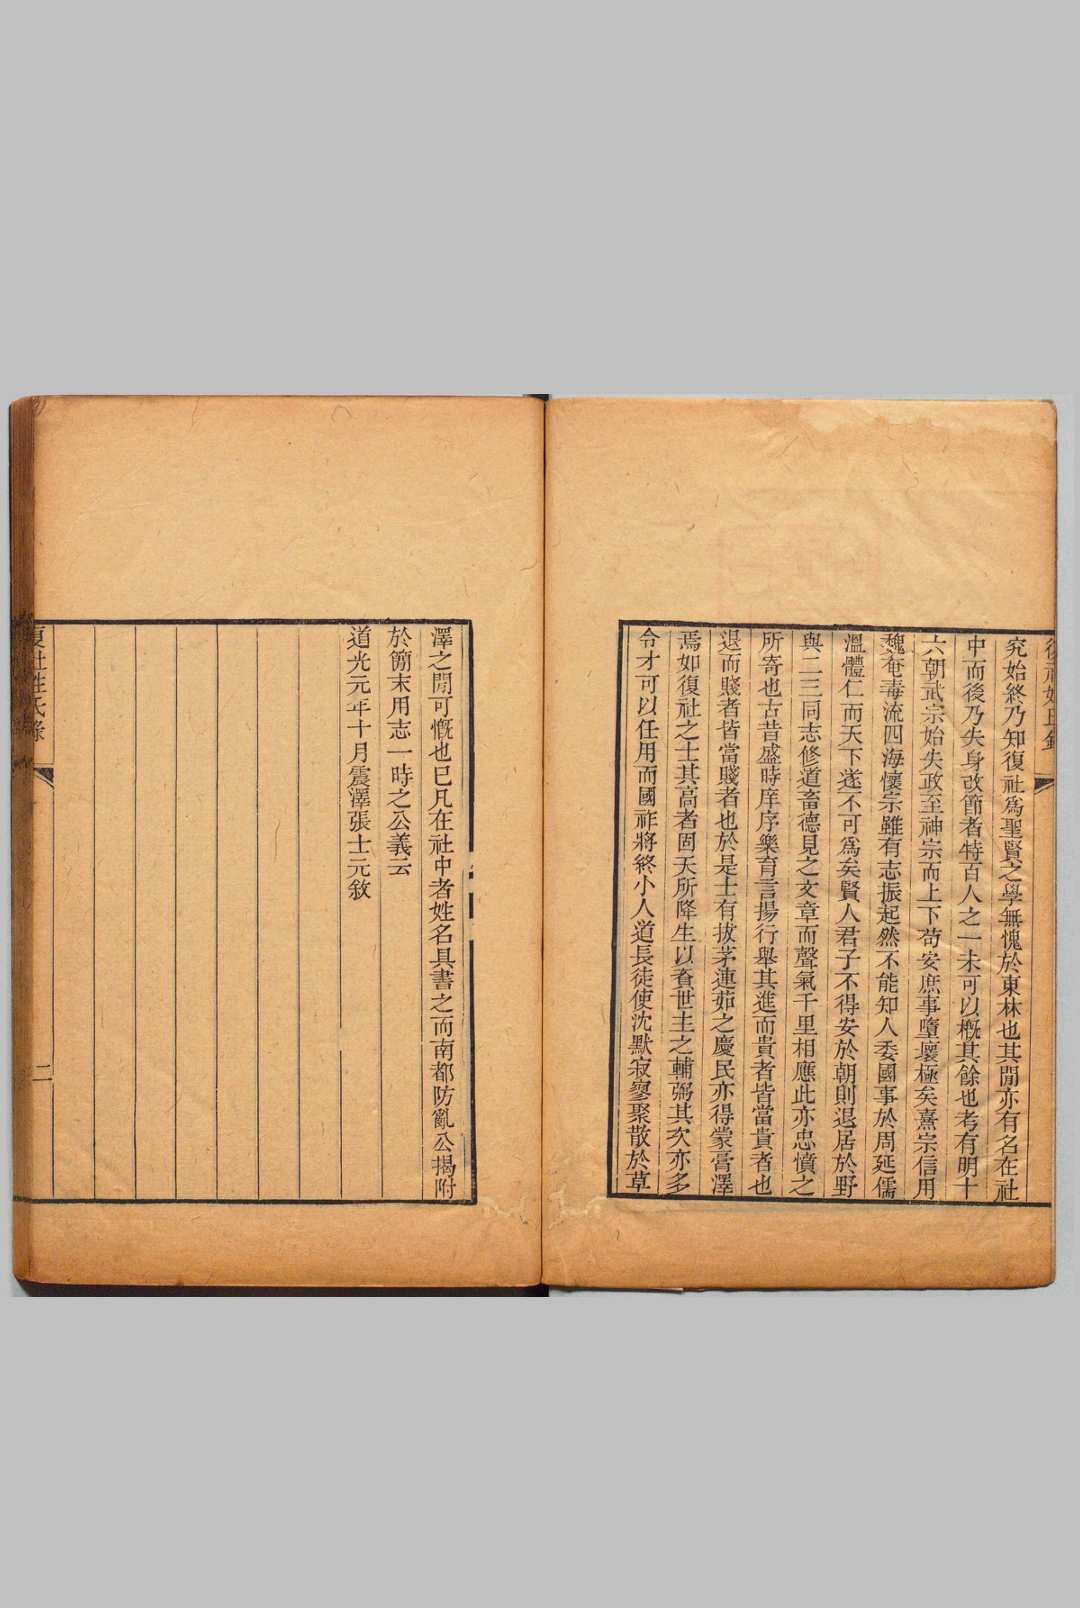 究始終乃知復社爲聖賢之學無愧於東林也其閒亦有名在社
中而後乃失身改節者特百人之一未可以槪其餘也考有明十
六朝武宗始失政至神宗而上下苟安庶事墮壞極矣熹宗信用
魏奄毒流四海懷宗雖有志振起然不能知人委國事於周延儒
溫體仁而天下遂不可爲矣賢人君子不得安於朝則退居於野
與二三同志修道畜德見之文章而聲氣千里相應此亦忠憤之
所寄也古昔盛時庠序樂育言揚行舉其進而貴者皆當貴者也
退而賤者皆當賤者也於是士有拔茅連茹之慶民亦得蒙膏澤
焉如復社之士其高者固天所降生以賚世主之輔弼其次亦多
令才可以任用而國祚將終小人道長徒使沈默寂寥聚散於草
澤之閒可慨也已凡在社中者姓名具書之而南都防亂公揭附
於簡末用志一時之公義云
道光元年十月震澤張士元敘
復社姓氏錄
二